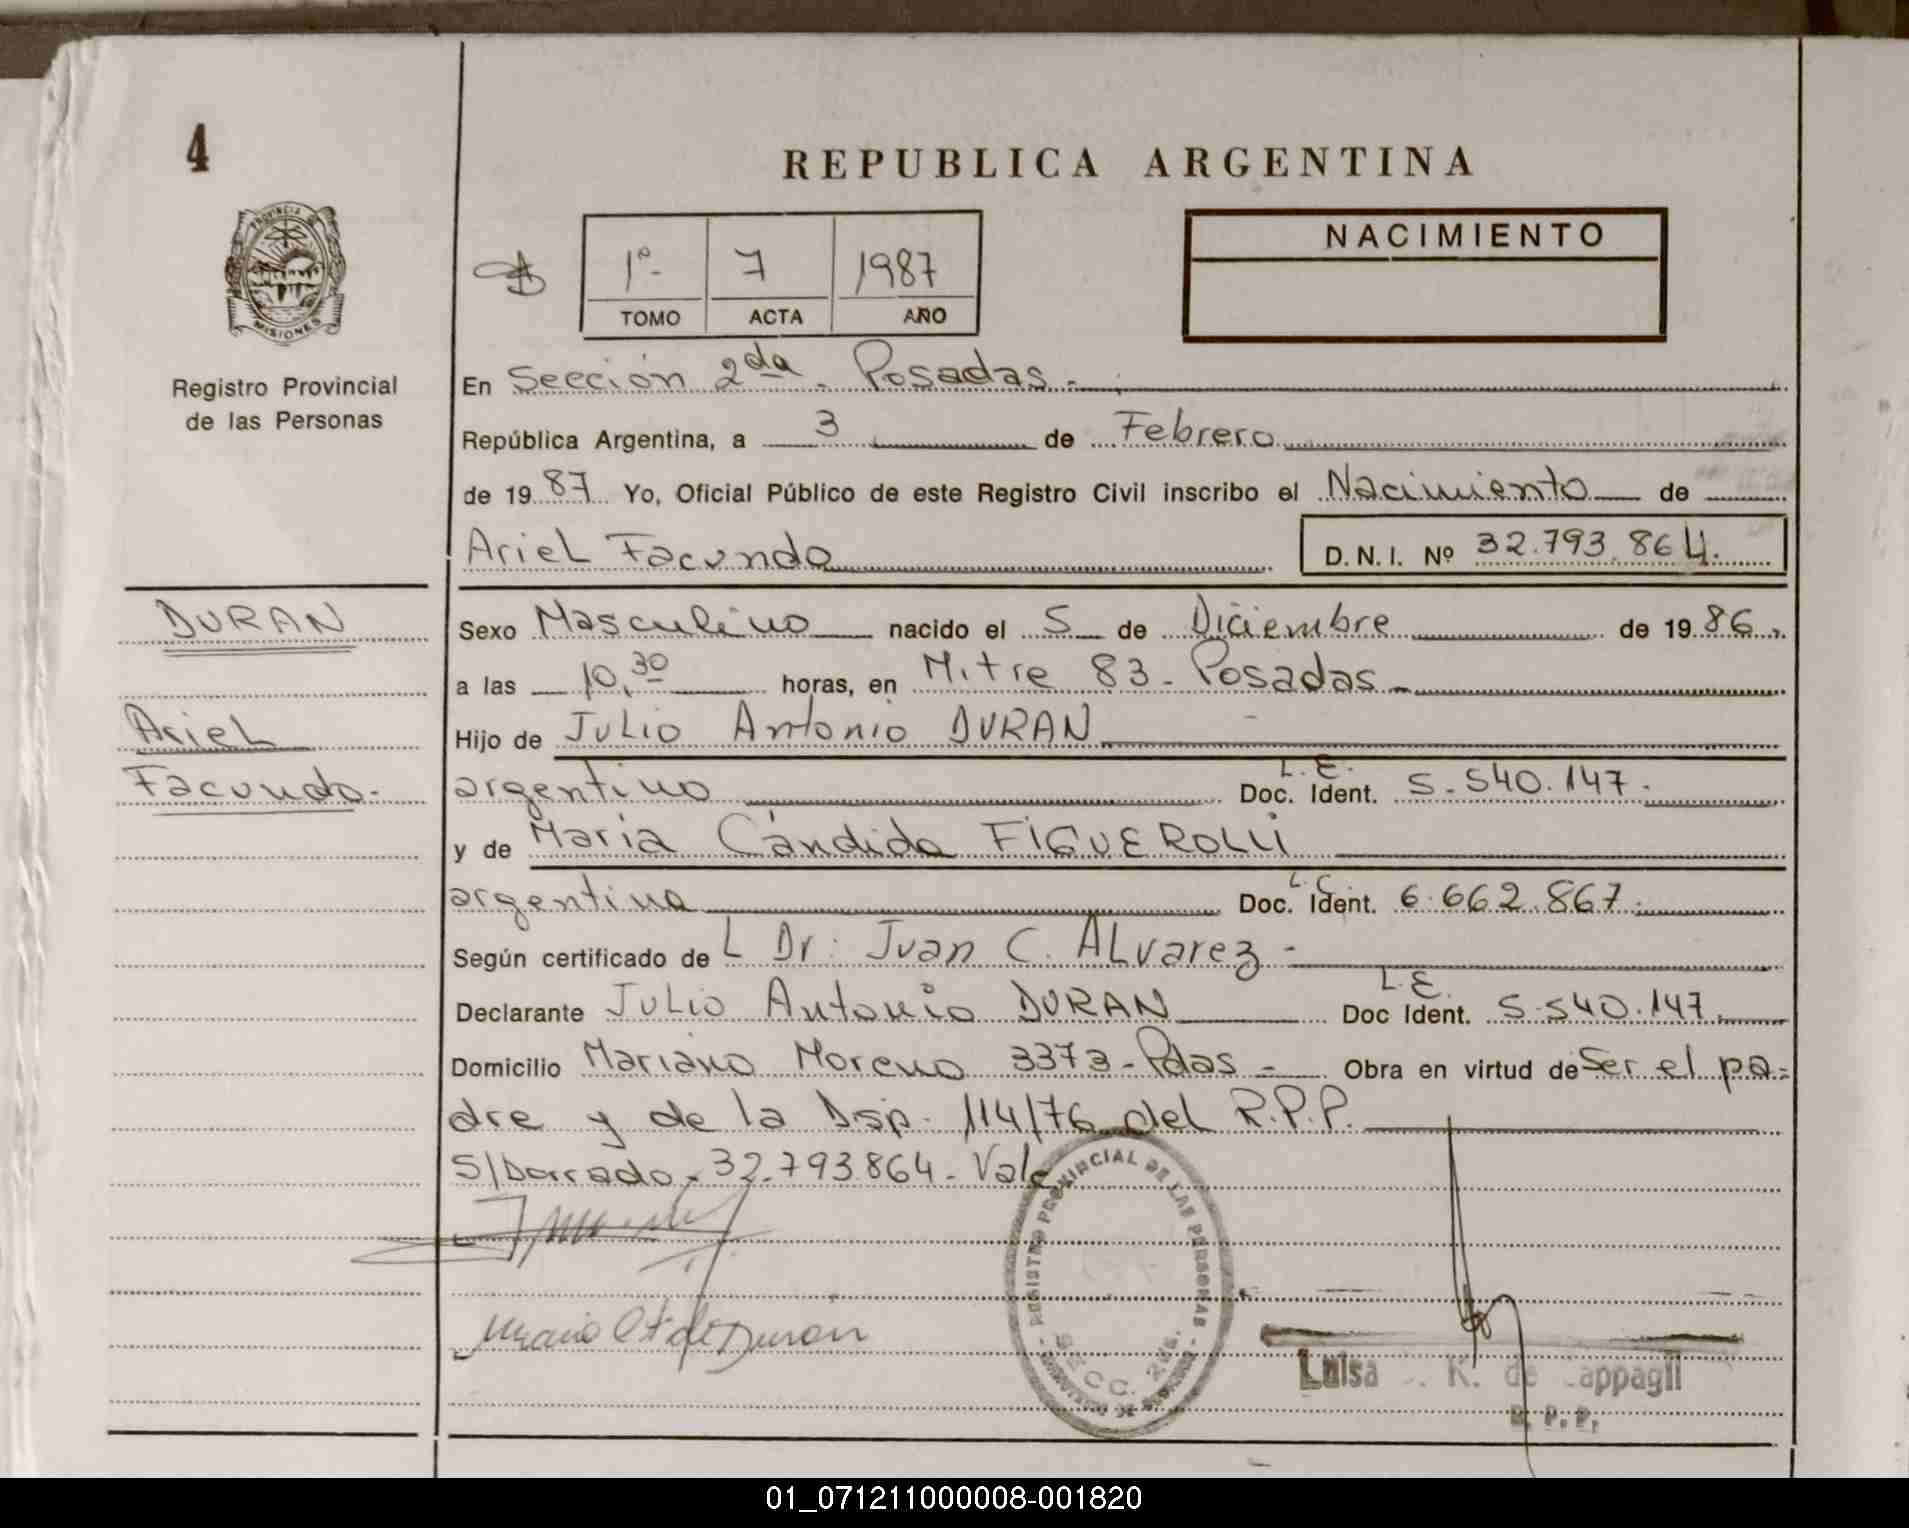 4
REPUBLICA ARGENTINA
PROVINCIA DE
MISIONES
Registro Provincial
de las Personas
1º- 7 1987
TOMO ACTA AÑO
NACIMIENTO
En Sección 2da. Posadas.-
República Argentina, a 3 de Febrero
de 1987 Yo, Oficial Público de este Registro Civil inscribo el Nacimiento de
Ariel Facundo D.N.I. Nº 32.793.864.
DURAN
Ariel
Facundo.-
Sexo Masculino nacido el 5 de Diciembre de 1986.
a las 10,30 horas, en Mitre 83 - Posadas -
Hijo de Julio Antonio DURAN
argentino Doc. Ident. L.E. 5.540.147.-
y de María Cándida FIGUEROLLI
argentina Doc. Ident. L.C. 6.662.867.-
Según certificado de L Dr: Juan C. Alvarez -
Declarante Julio Antonio DURAN Doc Ident. L.E. 5.540.147.
Domicilio Mariano Moreno 3373 - Pdas - Obra en virtud de Ser el pa-
dre y de la Dsp. 114/76 del R.P.P.
S/borrado - 32.793.864 - Vale
REGISTRO PROVINCIAL DE LAS PERSONAS
SECC. 2da.
Duran
Luisa K. de
R. P. P.
01_071211000008-001820